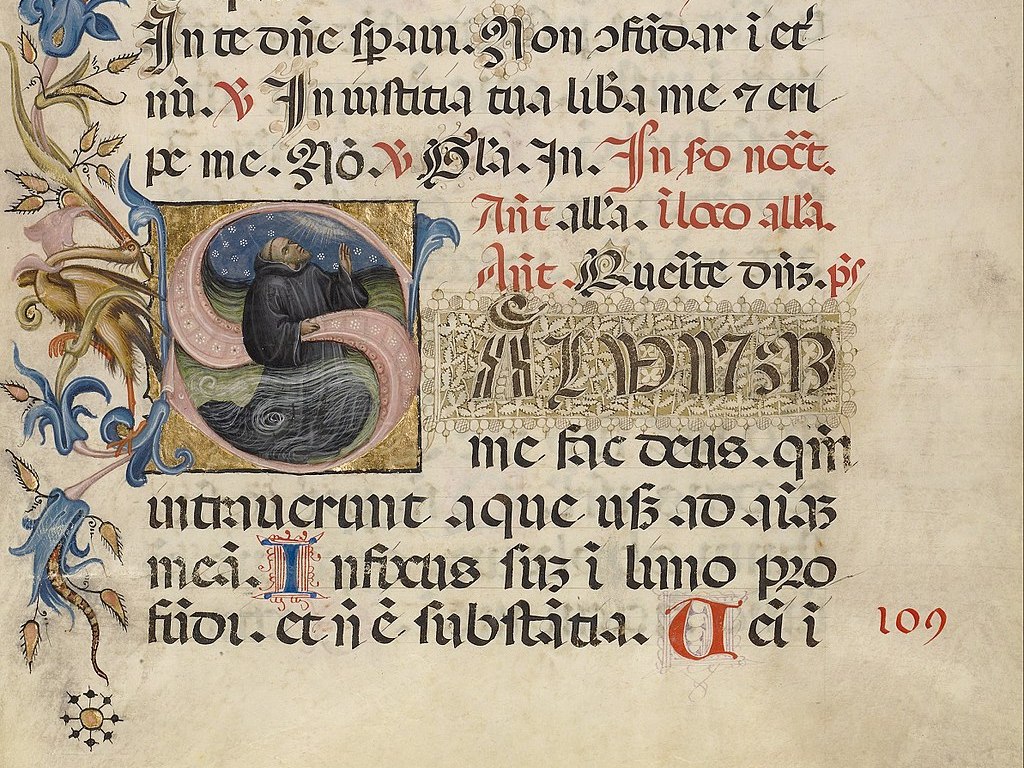 In te dn̄e sp̄aui. Non ↄfūdar ī et̄
nū. ℣ In iustitia tua lib̄a me ⁊ eri
pe me. Nō. ℣ Gl̄a. In. In fo noc̄t.
An̄t all̄a. ī loco all̄a.
An̄t. Quen̄te dn̄ꝫ. ps̄
SALVVM
me fac deus. qm̄
intrauerunt aque usꝫ ad aīaꝫ
meā. Infixus suꝫ ī limo pro
fūdi. et n̄ ē substātia. Ueī ī
109